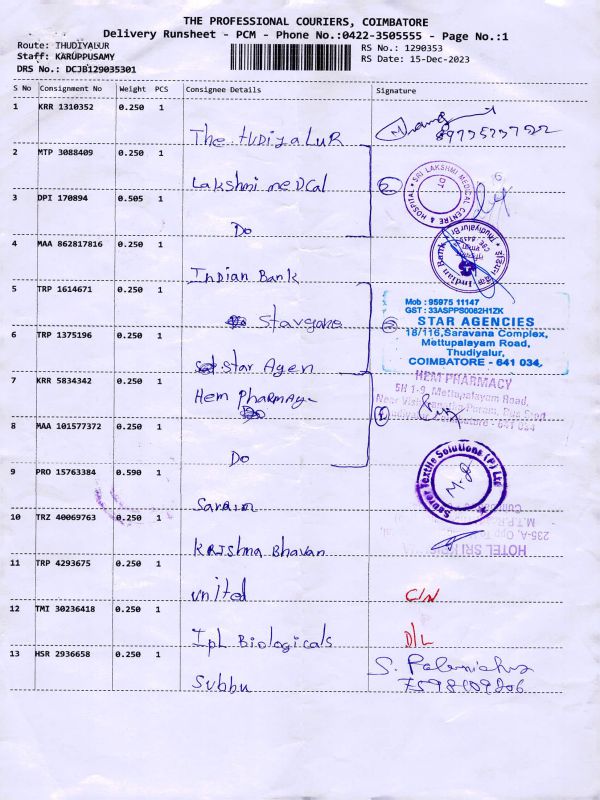 THE PROFESSIONAL COURIERS, COIMBATORE
Delivery Runsheet - PCM - Phone No.:0422-3505555 - Page No.:1
Route: THUDIYALUR
RS No.: 1290353
Staff: KARUPPUSAMY
RS Date: 15-Dec-2023
DRS No.: DCJB129035301
S No Consignment No Weight PCS Consignee Details Signature
1 KRR 1310352 0.250 1
The tUDiyaLuR
2 MTP 3088409 0.250 1
Lakshmi meDCal
SRI LAKSHMI MEDICAL CENTRE & HOSPITAL
OT
3 DPI 170894 0.505 1
Do
4 MAA 862817816 0.250 1
Indian Bank
Indian Bank
5 TRP 1614671 0.250 1
Mob : 95975 11147
GST : 33ASPPS0082H1ZK
STAR AGENCIES
18/116, Saravana Complex,
Mettupalayam Road,
Thudiyalur,
COIMBATORE - 641 034.
6 TRP 1375196 0.250 1
Star Agen
7 KRR 5834342 0.250 1
Hem PhaRMAy
HEM PHARMACY
5H 1-9, Mettupalayam Road,
8 MAA 101577372 0.250 1
Do
9 PRO 15763384 0.590 1
Textile Solutions (P) Ltd
10 TRZ 40069763 0.250 1
KRIShna Bhavan
HOTEL SRI
11 TRP 4293675 0.250 1
United
C/N
12 TMI 30236418 0.250 1
IpL Biologicals
D/L
13 HSR 2936658 0.250 1
Subbu